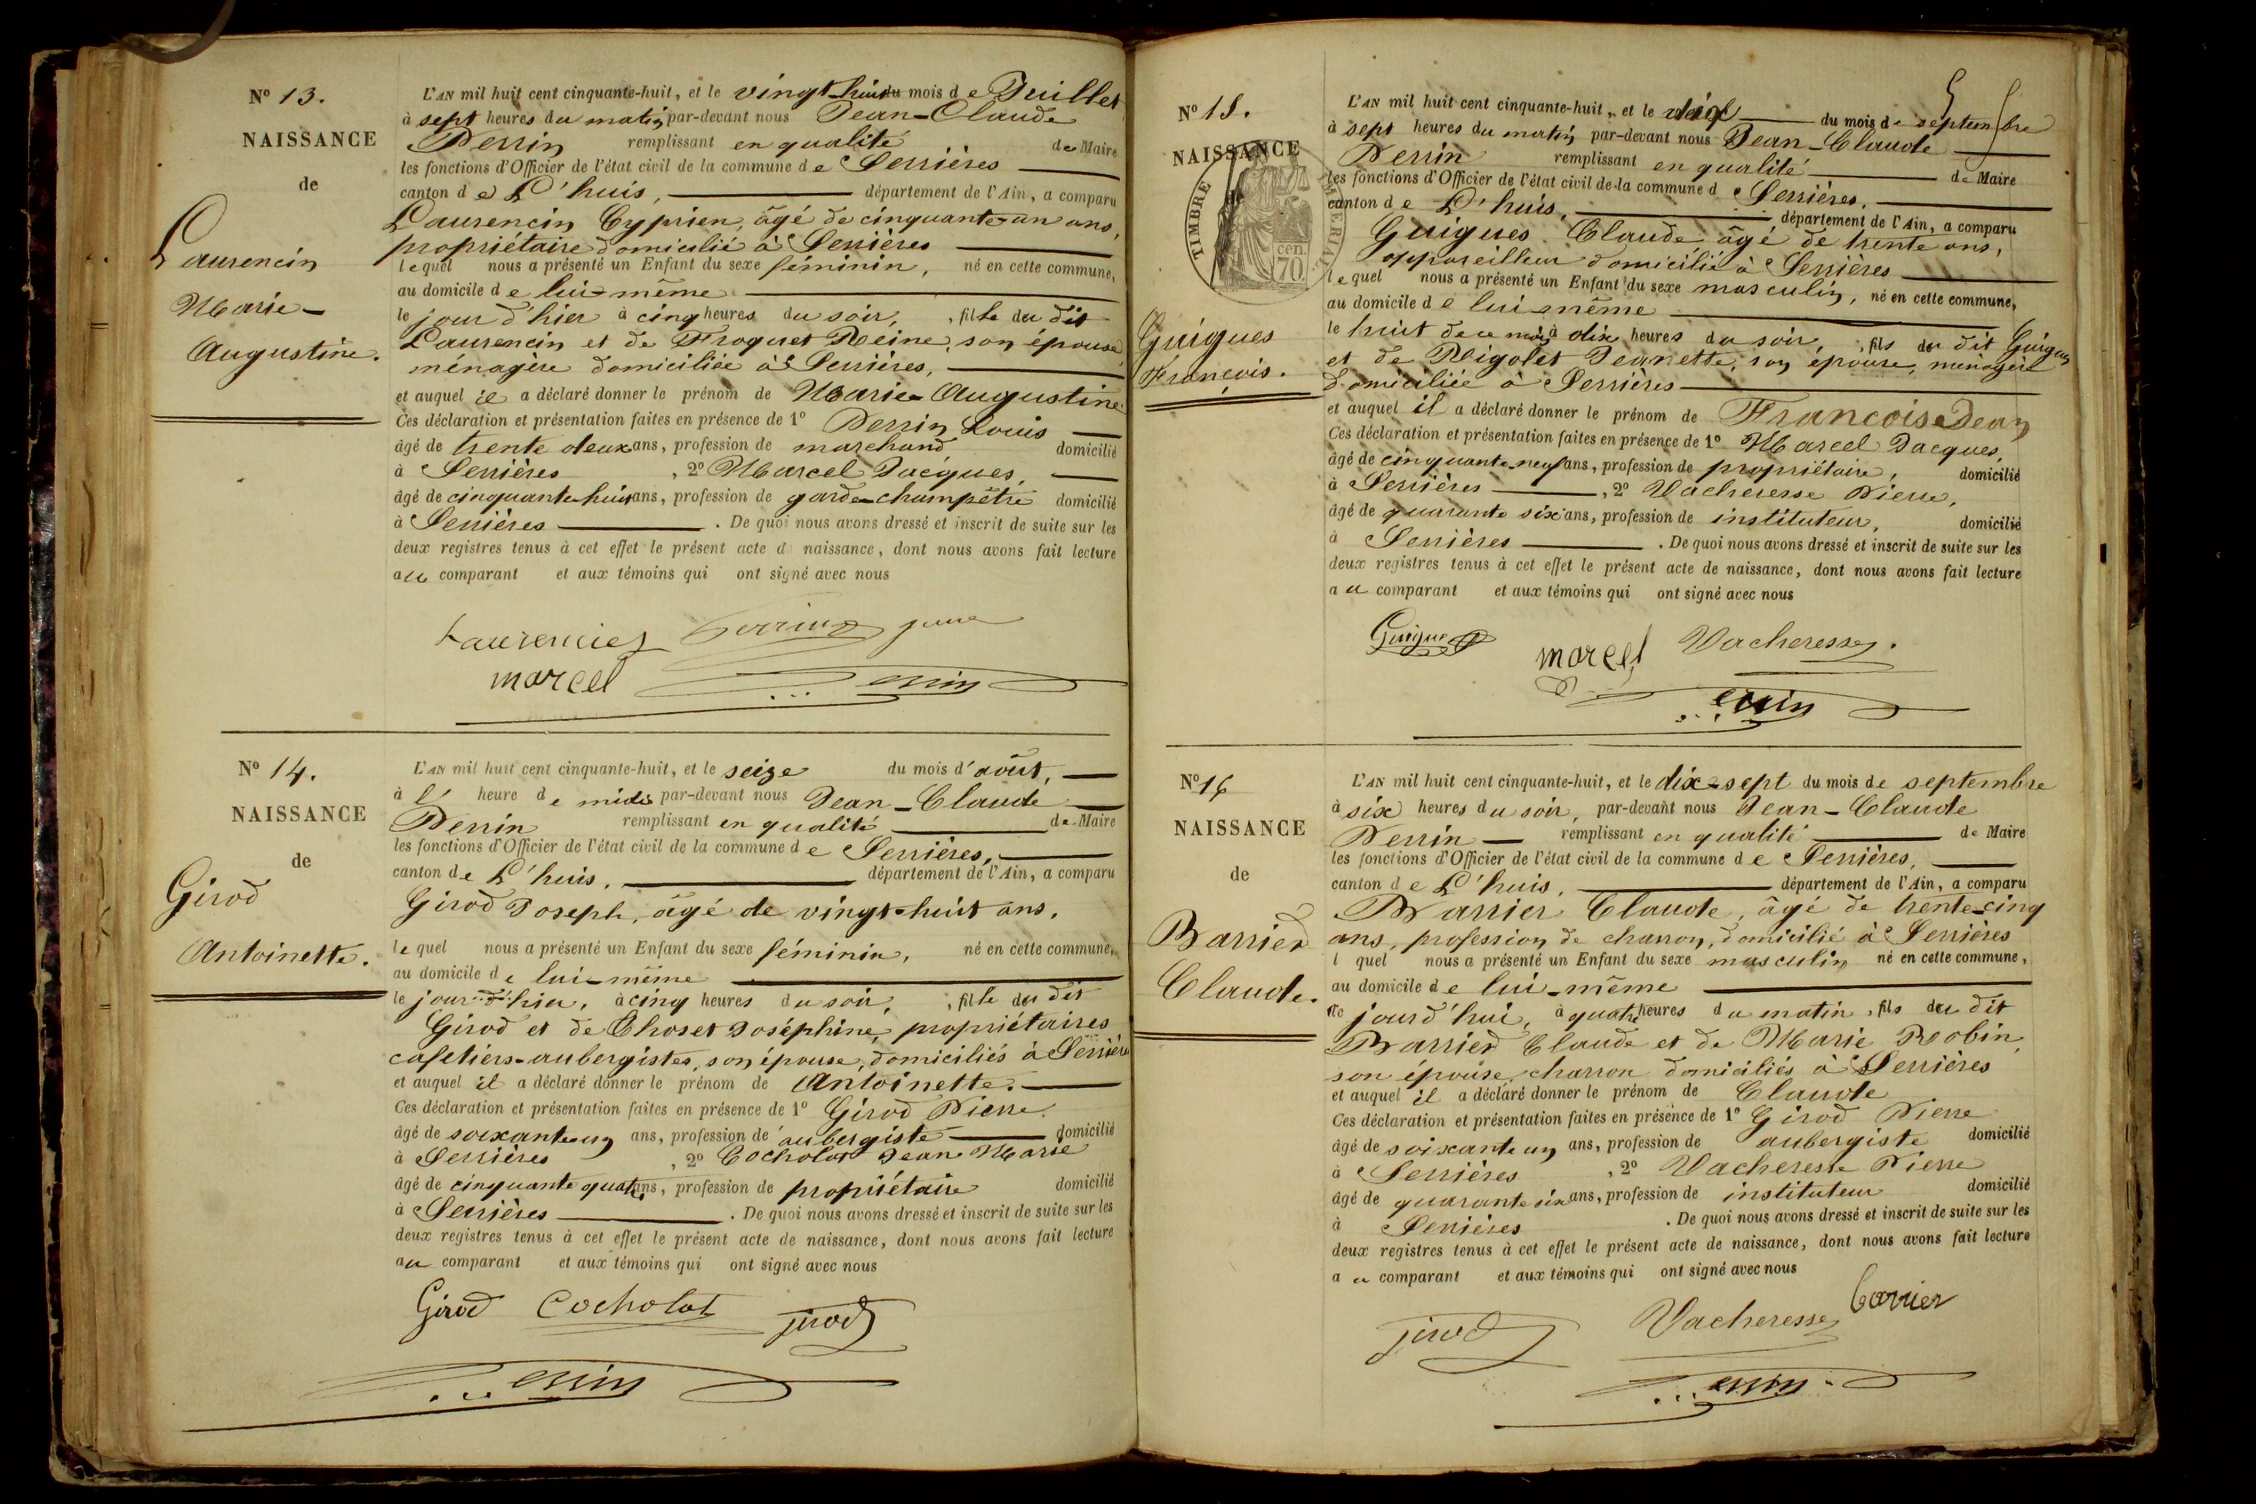 Nº 13.
NAISSANCE
de
Laurencin
Marie-
Augustine.
L'AN mil huit cent cinquante-huit, et le vingt-huit du mois de Juillet
à sept heures du matin par-devant nous Jean-Claude
Perrin remplissant en qualité de Maire
les fonctions d'Officier de l'état civil de la commune de Serrières
canton de L'huis, département de l'Ain, a comparu
Laurencin Cyprien, âgé de cinquante-un ans,
propriétaire domicilié à Serrières
lequel nous a présenté un Enfant du sexe féminin, né en cette commune,
au domicile de lui-même
le jour d'hier à cinq heures du soir, fille du dit
Laurencin et de Froquet Reine, son épouse
ménagère domiciliée à Serrières,
et auquel il a déclaré donner le prénom de Marie-Augustine
Ces déclaration et présentation faites en présence de 1º Perrin Louis
âgé de trente deux ans, profession de marchand domicilié
à Serrières, 2º Marcel Jacques,
âgé de cinquante-huit ans, profession de garde-champêtre domicilié
à Serrières. De quoi nous avons dressé et inscrit de suite sur les
deux registres tenus à cet effet le présent acte d naissance, dont nous avons fait lecture
au comparant et aux témoins qui ont signé avec nous
Laurencin Perrin
marcel Perrin
Nº 14.
NAISSANCE
de
Girod
Antoinette.
L'AN mil huit cent cinquante-huit, et le seize du mois d'août,
à l' heure de midi par-devant nous Jean-Claude
Perrin remplissant en qualité de Maire
les fonctions d'Officier de l'état civil de la commune de Serrières,
canton de L'huis, département de l'Ain, a comparu
Girod Joseph, âgé de vingt-huit ans,
lequel nous a présenté un Enfant du sexe féminin, né en cette commune,
au domicile de lui-même
le jour d'hier, à cinq heures du soir, fille du dit
Girod et de Choset Joséphine, propriétaires
cafetiers-aubergistes, son épouse, domiciliés à Serrières
et auquel il a déclaré donner le prénom de Antoinette.
Ces déclaration et présentation faites en présence de 1º Girod Pierre.
âgé de soixante un ans, profession de aubergiste domicilié
à Serrières, 2º Cocholat Jean Marie
âgé de cinquante quatre ans, profession de propriétaire domicilié
à Serrières. De quoi nous avons dressé et inscrit de suite sur les
deux registres tenus à cet effet le présent acte de naissance, dont nous avons fait lecture
au comparant et aux témoins qui ont signé avec nous
Girod Cocholat jirod
Perrin
Nº 15.
NAISSANCE
TIMBRE IMPERIAL
70 cen.
Guigues
François.
L'AN mil huit cent cinquante-huit, et le dix du mois de septembre
à sept heures du matin par-devant nous Jean-Claude
Perrin remplissant en qualité de Maire
les fonctions d'Officier de l'état civil de la commune de Serrières.
canton de L'huis, département de l'Ain, a comparu
Guigues Claude âgé de trente ans,
appareilleur domicilié à Serrières
lequel nous a présenté un Enfant du sexe masculin, né en cette commune,
au domicile de lui-même
le huit de ce mois à dix heures du soir, fils du dit Guigues
et de Rigolet Jeanette, son épouse, ménagère
domiciliée à Serrières
et auquel il a déclaré donner le prénom de François Jean
Ces déclaration et présentation faites en présence de 1º Marcel Jacques,
âgé de cinquante-neuf ans, profession de propriétaire, domicilié
à Serrières, 2º Vacheresse Pierre,
âgé de quarante six ans, profession de instituteur, domicilié
à Serrières. De quoi nous avons dressé et inscrit de suite sur les
deux registres tenus à cet effet le présent acte de naissance, dont nous avons fait lecture
au comparant et aux témoins qui ont signé avec nous
Guigues marcel Vacheresse.
Perrin
Nº 16
NAISSANCE
de
Barrier
Claude.
L'AN mil huit cent cinquante-huit, et le dix-sept du mois de septembre
à six heures du soir, par-devant nous Jean-Claude
Perrin remplissant en qualité de Maire
les fonctions d'Officier de l'état civil de la commune de Serrières,
canton de L'huis, département de l'Ain, a comparu
Barrier Claude, âgé de trente-cinq
ans, profession de charron, domicilié à Serrières
l quel nous a présenté un Enfant du sexe masculin né en cette commune,
au domicile de lui-même
le jourd'hui, à quatre heures du matin, fils du dit
Barrier Claude et de Marie Robin,
son épouse, charron domiciliés à Serrières
et auquel il a déclaré donner le prénom de Claude
Ces déclaration et présentation faites en présence de 1º Girod Pierre
âgé de soixante un ans, profession de aubergiste domicilié
à Serrières, 2º Vacheresse Pierre
âgé de quarante six ans, profession de instituteur domicilié
à Serrières. De quoi nous avons dressé et inscrit de suite sur les
deux registres tenus à cet effet le présent acte de naissance, dont nous avons fait lecture
au comparant et aux témoins qui ont signé avec nous
jirod Vacheresse barrier
Perrin